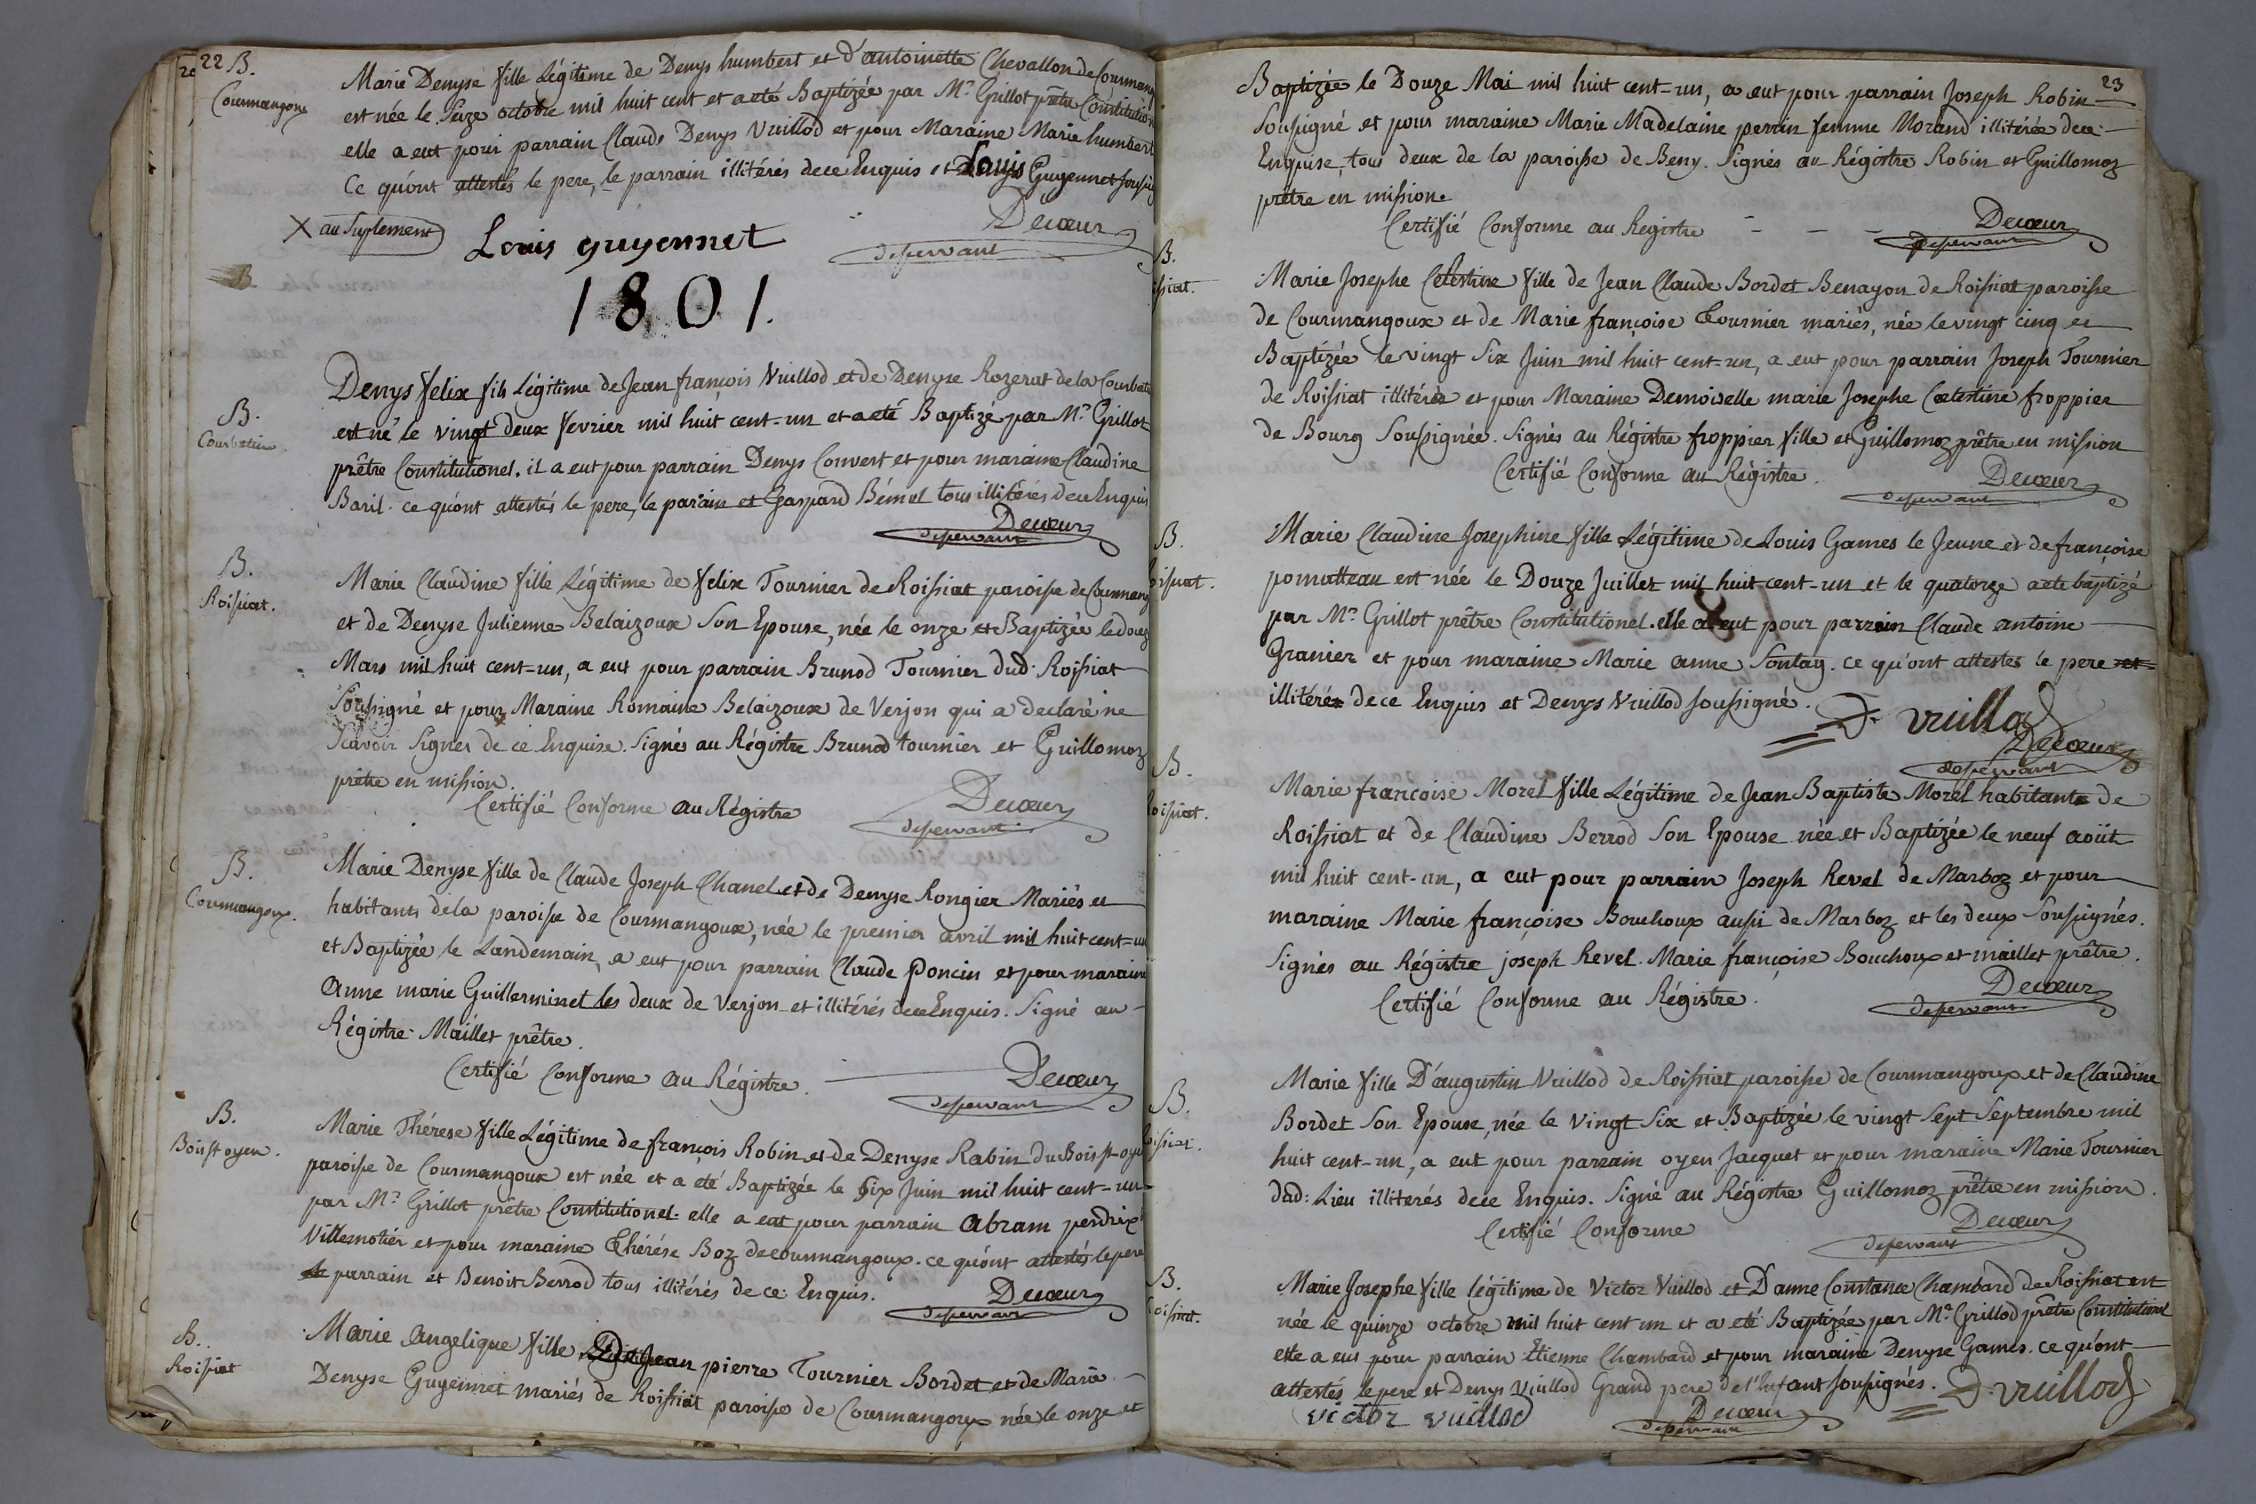 22 B.
Courmangoux
Marie Denyse fille Légitime de Denys humbert et d'antoinette Chevallon de Courmang
est née le Seize octobre mil huit cent et a eté Baptizée par Mr. Grillot prêtre Constitution
elle a eut pour parrain Claude Denys Vuillod et pour Maraine Marie humbert
Ce qu'ont attestés le pere, le parrain illitérés de ce Enquis et Louis Guyennet soussig
X au Suplement
Louis guyennet
Decœur
desservant
B
1801.
B.
Courbatin
Denys felix fils Légitime de Jean françois Vuillod et de Denyse Rozerat de la Courbat
est né le vingt deux fevrier mil huit cent-un et a eté Baptizé par Mr. Grillot
prêtre Constitutionel. il a eut pour parrain Denys Convert et pour maraine Claudine
Baril. ce qu'ont attestés le pere, le parain et Gaspard Bémel tous illitérés de ce Enquis
Decœur
desservant
B.
Roissiat.
Marie Claudine fille Légitime de felix Tournier de Roissiat paroisse de Courmang
et de Denyse Julienne Belaizoux Son Epouse, née le onze et Baptizée le douze
Mars mil huit cent-un, a eut pour parrain Brunod Tournier dud. Roissiat
Soussigné et pour Maraine Romaine Belaizoux de Verjon qui a declaré ne
Scavoir Signer de ce Enquise. Signés au Régistre Brunod tournier et Guillomoz
prêtre en mission.
Certifié Conforme au Régistre
Decœur
desservant
B.
Courmangoux.
Marie Denyse fille de Claude Joseph Chanel et de Denyse Rongier Mariés et
habitants de la paroisse de Courmangoux, née le premier avril mil huit cent-un
et Baptizée le Landemain, a eut pour parrain Claude Poncin et pour maraine
Anne marie Guillerminet les deux de Verjon et illitérés de ce Enquis. Signé au
Régistre Maillet prêtre.
Certifié Conforme au Régistre.
Decœur
desservant
B.
Bois st oyen.
Marie Thérese fille Légitime de françois Robin et de Denyse Rabin du Bois st-oye
paroisse de Courmangoux est née et a été Baptizée le Six Juin mil huit cent-un
par Mr. Grillot prêtre Constitutionel. elle a eut pour parrain Abram perdrix
Villemotier et pour maraine Thérése Boz de courmangoux. ce qu'ont attestés le pere
le parrain et Benoit Berrod tous illitérés de ce Enquis.
Decœur
desservant
B.
Roissiat
Marie Angelique fille de Jean pierre Tournier Bordet et de Marie
Denyse Guyennet mariés de Roissiat paroisse de Courmangoux née le onze et
23
Baptizée le Douze Mai mil huit cent-un, a eut pour parrain Joseph Robin
Soussigné et pour maraine Marie Madelaine perrin femme Morand illitérée de ce
Enquise, tous deux de la paroisse de Beny. Signés au Régistre Robin et Guillomoz
prêtre en mission
Certifié Conforme au Registre
Decœur
desservant
B.
issiat.
Marie Josephe Celestine fille de Jean Claude Bordet Benayon de Roissiat paroisse
de Courmangoux et de Marie françoise Tournier mariés, née le vingt cinq et
Baptizée le vingt Six Juin mil huit cent-un, a eut pour parrain Joseph Tournier
de Roissiat illitéré et pour Maraine Demoiselle marie Josephe Celestine froppier
de Bourg Soussignée. Signés au Régistre froppier fille et Guillomoz prêtre en mission
Certifié Conforme au Régistre.
Decœur
desservant
B.
oissiat.
Marie Claudine Josephine fille Légitime de Louis Games le Jeune et de françoise
pomatteau est née le Douze Juillet mil huit cent-un et le quatorze a eté baptizé
par Mr. Grillot prêtre Constitutionel. elle a eut pour parrain Claude antoine
Granier et pour maraine Marie anne Sontag. ce qu'ont attestés le pere et
illitéré de ce Enquis et Denys Vuillod soussigné.
D. vuillod
Decœur
desservant
B.
Roissiat.
Marie francoise Morel fille Légitime de Jean Baptiste Morel habitants de
Roissiat et de Claudine Berrod Son Epouse née et Baptizée le neuf août
mil huit cent-un, a eut pour parrain Joseph Revel de Marboz et pour
maraine Marie françoise Bouchoux aussi de Marboz et les deux Soussignés.
Signés au Régistre joseph Revel. Marie françoise Bouchoux et maillet prêtre.
Certifié Conforme au Régistre.
Decœur
desservant
B.
oissiat.
Marie fille D'augustin Vuillod de Roissiat paroisse de Courmangoux et de Claudine
Bordet Son Epouse, née le vingt Six et Baptizée le vingt Sept Septembre mil
huit cent-un, a eut pour parrain oyen Jacquet et pour maraine Marie Tournier
dud: Lieu illiterés de ce Enquis. Signé au Régistre Guillomoz prêtre en mission.
Certifié Conforme
Decœur
desservant
B.
oissiat.
Marie Josephe fille légitime de Victor Vuillod et D'anne Constance Chambard de Roissiat est
née le quinze octobre mil huit cent un et a eté Baptizée par Mr. Grillod prêtre Constitutionel
elle a eus pour parrain Etienne Chambard et pour maraine Denyse Games. ce qu'ont
attestés le pere et Denys Vuillod Grand pere de l'Enfant soussignés. D. vuillod
victor vuillod
Decœur
desservant